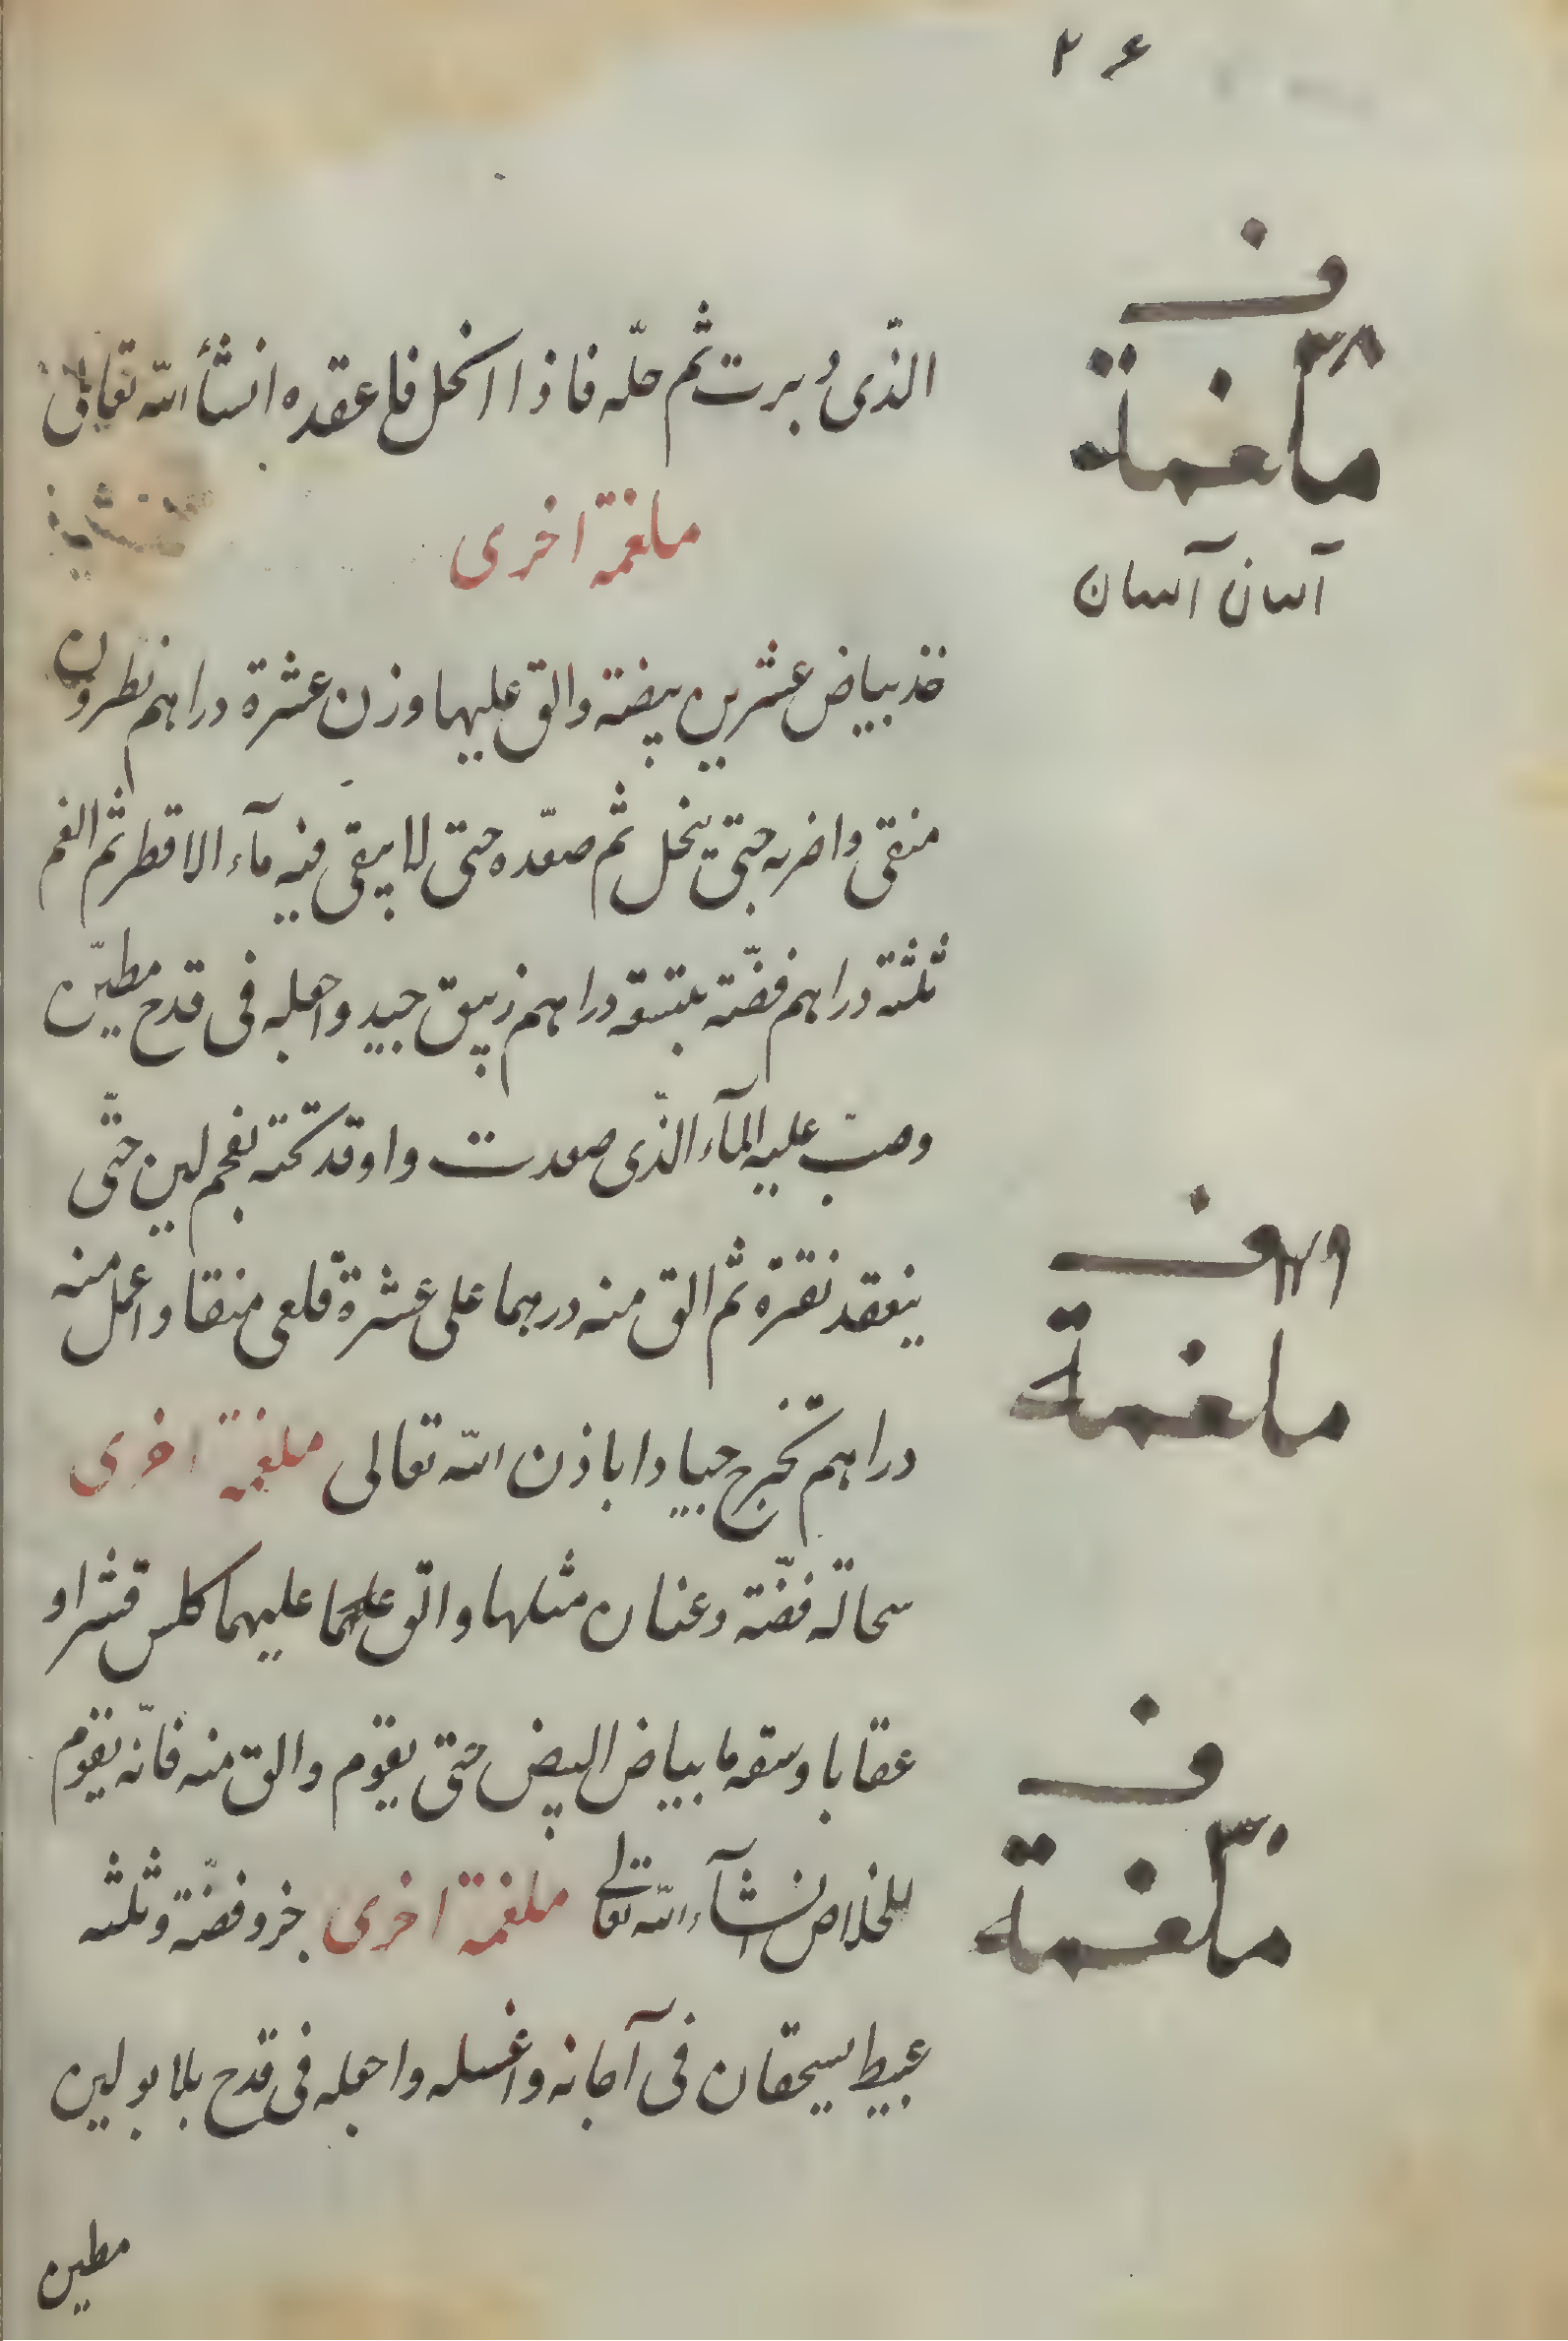 ۲۶
الذّى دبرت ثم حلّه فاذا انحل فاعقده انشأ اللّه تعالى
ملغمة اخرى
خذ بياض عشرين بيضة والق عليها وزن عشرة دراهم نطرون
منقى واضربه حتى ينحل ثم صعّده حتى لا يبقى فيه مآء الا قطر ثم الغم
ثلثة دراهم فضّة بتسعة دراهم زيبق جيد واجعله فى قدح مطيّن
وصبّ عليه المآء الذّى صعدت واوقد تحته بفحم لين حتّى
ينعقد نقرة ثم الق منه درهما على عشرة قلعى منقا واعمل منه
دراهم تخرج جيادا باذن اللّه تعالى ملغمة اخرى
سحالة فضّة وعنان مثلها والق عليهما كلس قشر او
عقابا وسقهما بياض البيض حتى يقوم والق منه فانّه يقوم
للخلاص انشآء اللّه تعالى ملغمة اخرى جزو فضّة وثلثه
عبيط يسحقان فى آجانه واغسله واجعله فى قدح بلا بولين
مطين
ف
۲۸
ملغمة
آسان آسان
ف
۲۹
ملغمة
ف
۳۰
ملغمة